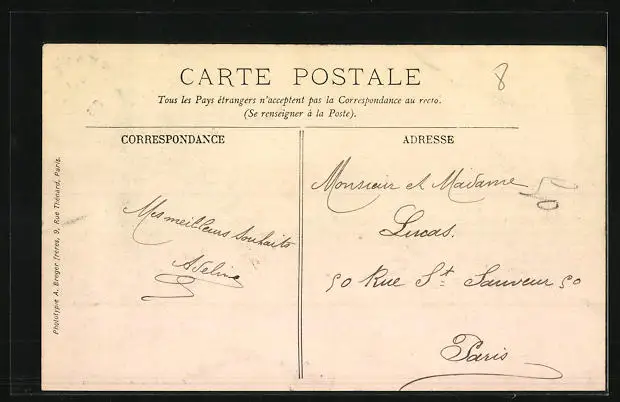 CARTE POSTALE
8
Tous les Pays étrangers n'acceptent pas la Correspondance au recto.
(Se renseigner à la Poste).
CORRESPONDANCE
Mes meilleurs souhaits
Adeline
ADRESSE
Monsieur et Madame
Lucas.
50 Rue St Sauveur 50
Paris
Phototypie A. Breger frères, 9, Rue Thénard, Paris.